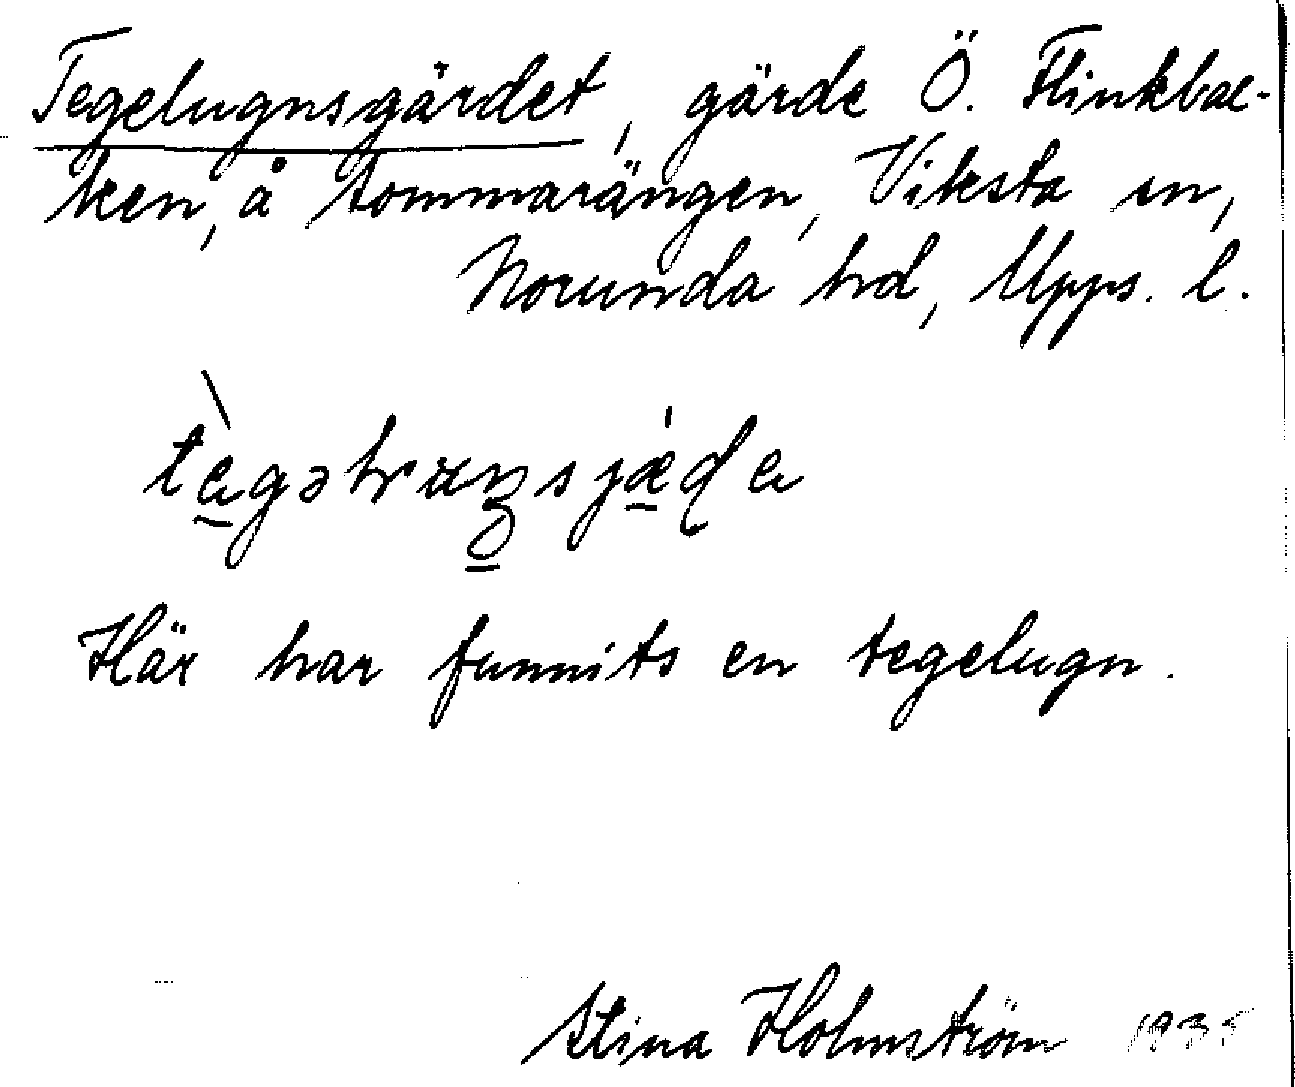 Tegelugnsgärdet, gärde Ö. Flinkbac-
ken, å Sommarängen, Viksta sn,
Norunda hd, Upps. l.
Här har funnits en tegelugn.
Stina Holmström 1935